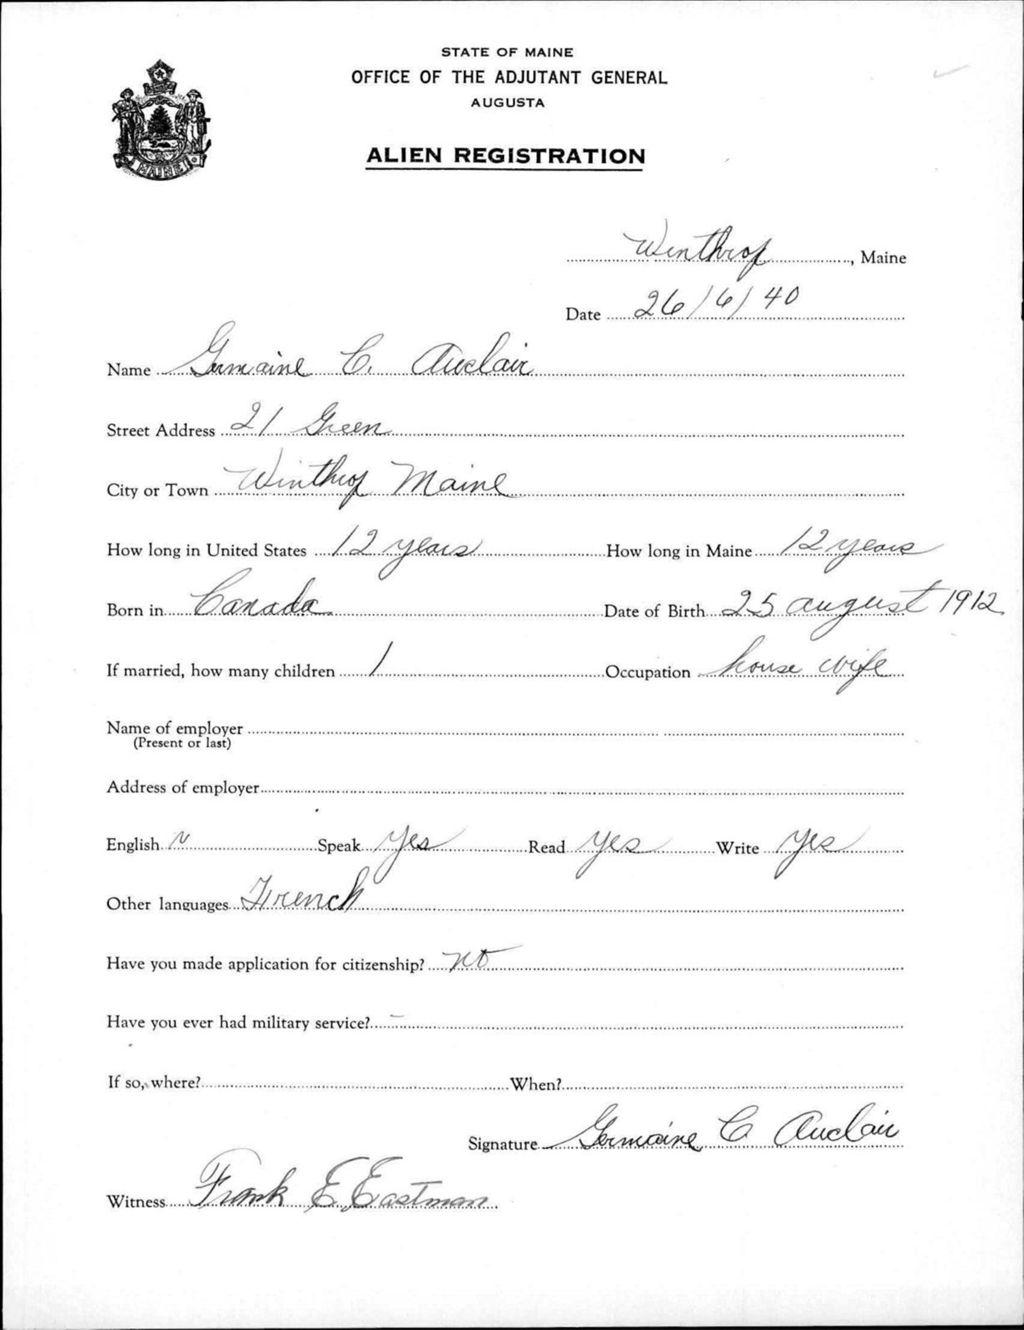 STATE OF MAINE
OFFICE OF THE ADJUTANT GENERAL
AUGUSTA
ALIEN REGISTRATION
MAINE
Winthrop, Maine
Date 26/6/40
Name Germaine C. Auclair
Street Address 21 Green
City or Town Winthrop Maine
How long in United States 12 years How long in Maine 12 years
Born in Canada Date of Birth 25 august 1912
If married, how many children 1 Occupation house wife
Name of employer
(Present or last)
Address of employer
English Speak Yes Read Yes Write Yes
Other languages French
Have you made application for citizenship? no
Have you ever had military service? -
If so, where? When?
Signature Germaine C Auclair
Witness Frank E Eastman